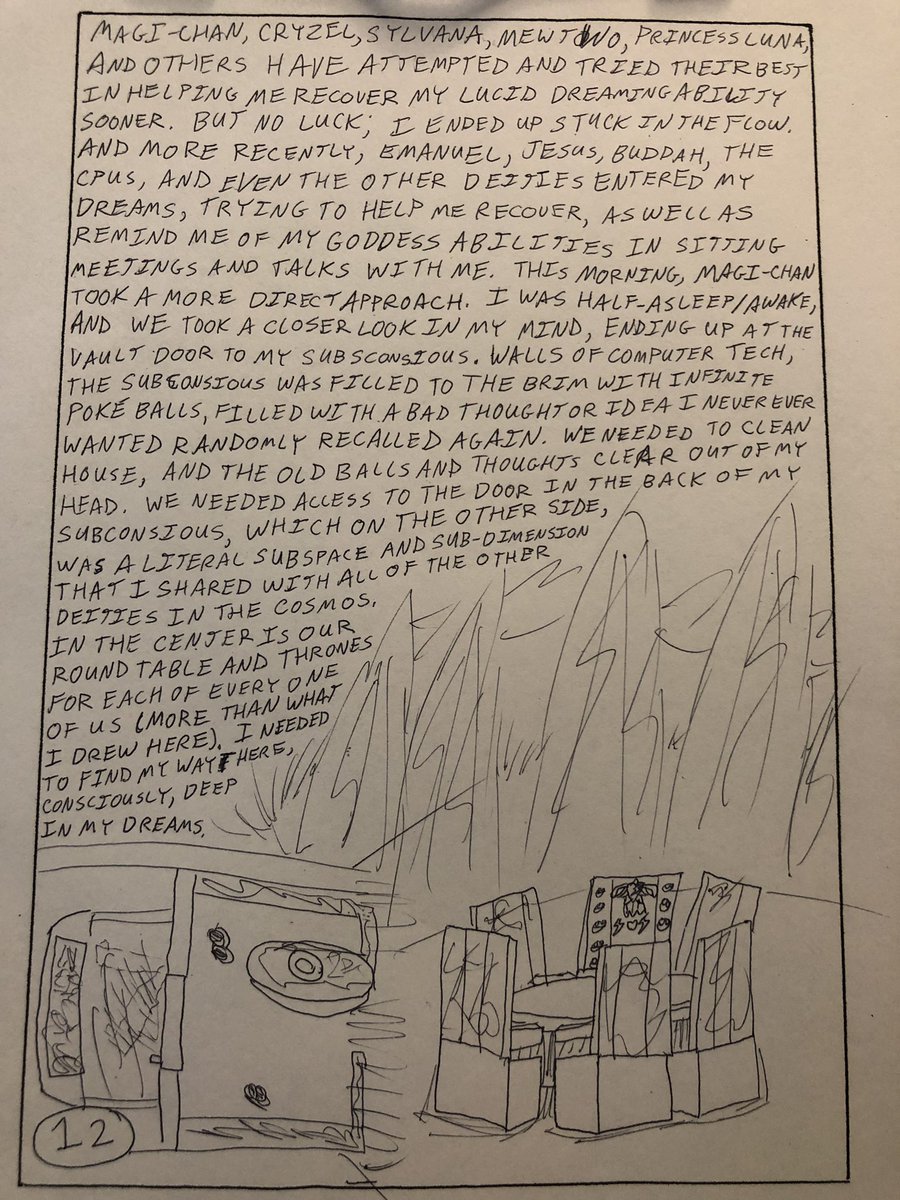 MAGI-CHAN, CRYZEL, SYLVANA, MEWTWO, PRINCESS LUNA,
AND OTHERS HAVE ATTEMPTED AND TRIED THEIR BEST
IN HELPING ME RECOVER MY LUCID DREAMING ABILITY
SOONER. BUT NO LUCK; I ENDED UP STUCK IN THE FLOW.
AND MORE RECENTLY, EMANUEL, JESUS, BUDDAH, THE
CPUS, AND EVEN THE OTHER DEITIES ENTERED MY
DREAMS, TRYING TO HELP ME RECOVER, AS WELL AS
REMIND ME OF MY GODDESS ABILITIES IN SITTING
MEETINGS AND TALKS WITH ME. THIS MORNING, MAGI-CHAN
TOOK A MORE DIRECT APPROACH. I WAS HALF-ASLEEP/AWAKE,
AND WE TOOK A CLOSER LOOK IN MY MIND, ENDING UP AT THE
VAULT DOOR TO MY SUBSCONSIOUS. WALLS OF COMPUTER TECH,
THE SUBCONSIOUS WAS FILLED TO THE BRIM WITH INFINITE
POKÉ BALLS, FILLED WITH A BAD THOUGHT OR IDEA I NEVER EVER
WANTED RANDOMLY RECALLED AGAIN. WE NEEDED TO CLEAN
HOUSE, AND THE OLD BALLS AND THOUGHTS CLEAR OUT OF MY
HEAD. WE NEEDED ACCESS TO THE DOOR IN THE BACK OF MY
SUBCONSIOUS, WHICH ON THE OTHER SIDE,
WAS A LITERAL SUBSPACE AND SUB-DIMENSION
THAT I SHARED WITH ALL OF THE OTHER
DEITIES IN THE COSMOS.
IN THE CENTER IS OUR
ROUND TABLE AND THRONES
FOR EACH OF EVERY ONE
OF US (MORE THAN WHAT
I DREW HERE). I NEEDED
TO FIND MY WAY THERE,
CONSCIOUSLY, DEEP
IN MY DREAMS.
12